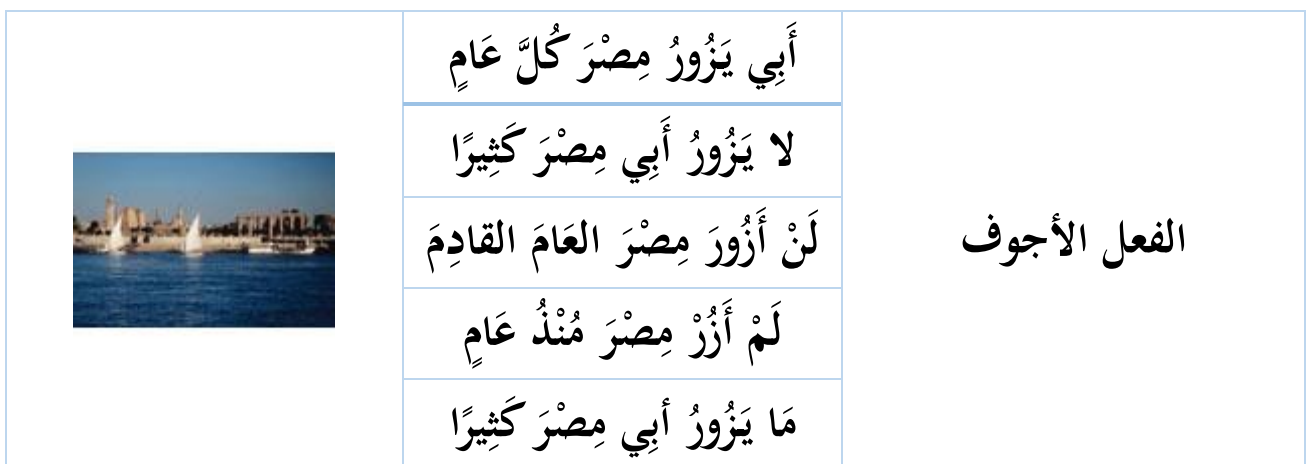 الفعل الأجوف
أَبِي يَزُورُ مِصْرَ كُلَّ عَامٍ
لا يَزُورُ أَبِي مِصْرَ كَثِيرًا
لَنْ أَزُورَ مِصْرَ العَامَ القادِمَ
لَمْ أَزُرْ مِصْرَ مُنْذُ عَامٍ
مَا يَزُورُ أبِي مِصْرَ كَثِيرًا